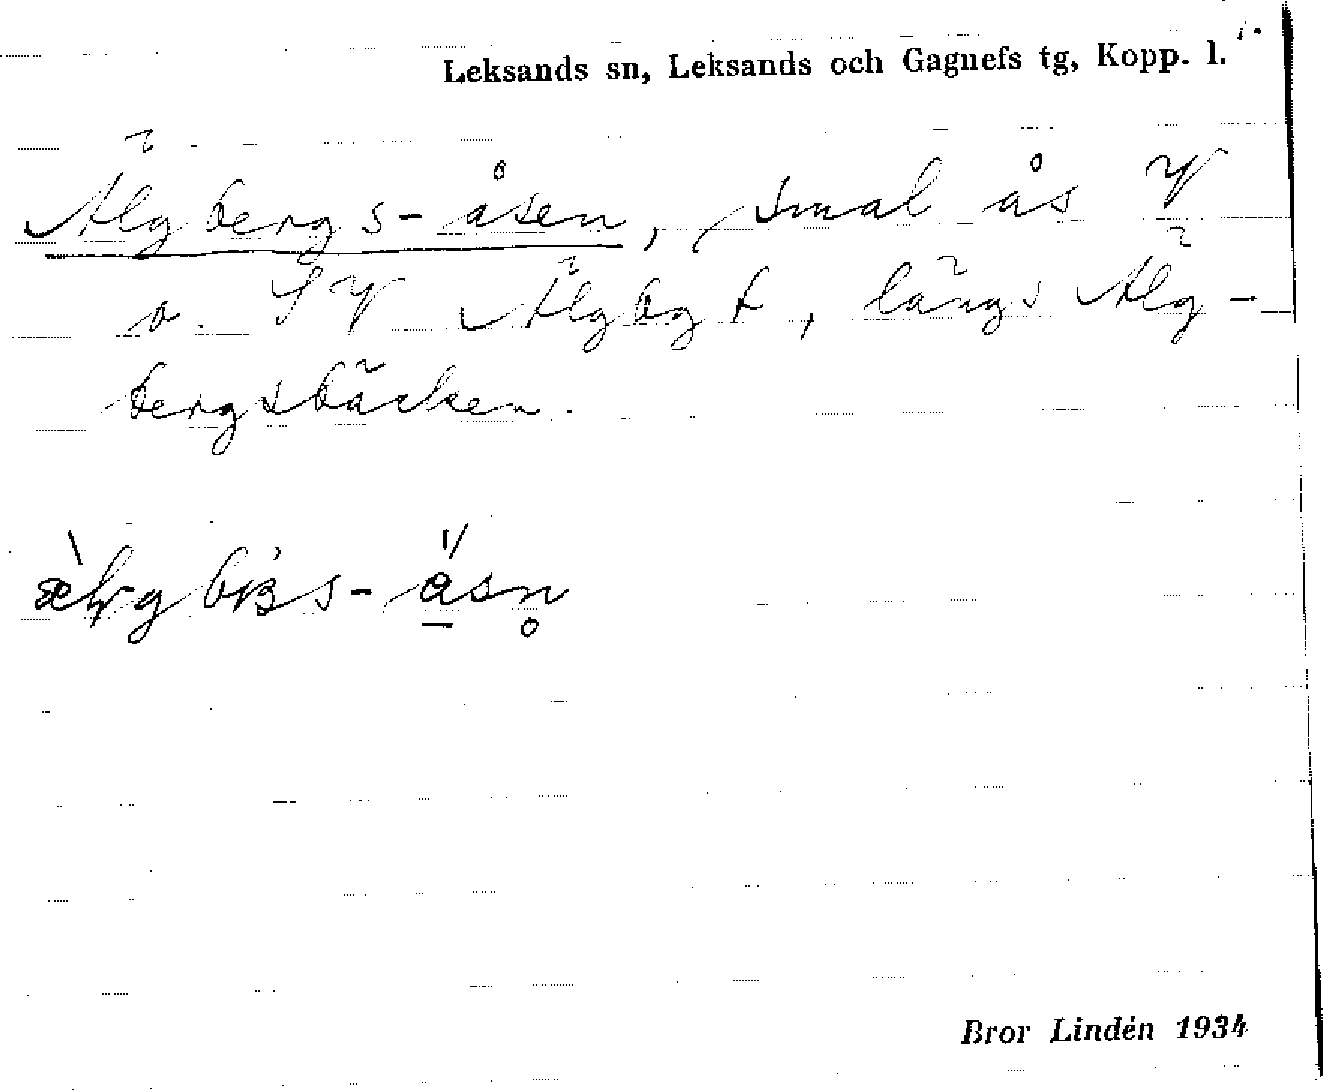 Leksands sn, Leksands och Gagnefs tg, Kopp. l.
Älgbergs-åsen, smal ås V
o. SV Älgbgt, längs Älg-
bergsbäcken.
Bror Lindén 1934